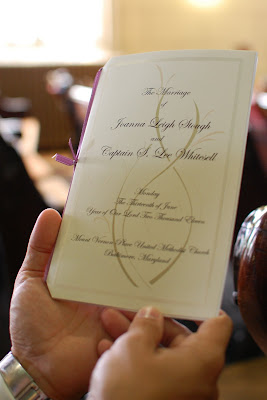 The Marriage of
Joanna Leigh Stough
and
Captain S. Lee Whitesell
Monday
The Thirteenth of June
Year of Our Lord Two Thousand Eleven
Mount Vernon Place United Methodist Church
Baltimore, Maryland